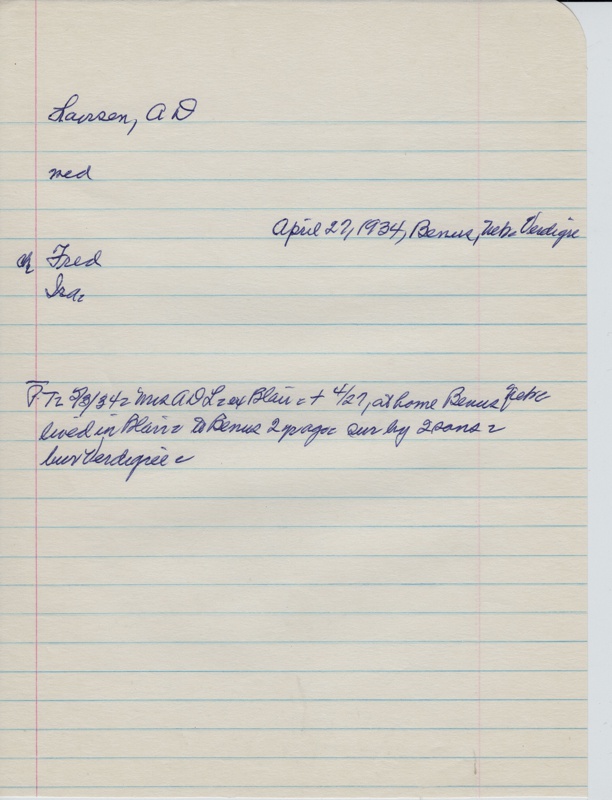 Laursen, A D
med
April 27, 1934, Benus, Nebr Verdigre
ch Fred
Ira.
T. 5/3/34 = Mrs A D L = ex Blair = + 4/27, at home Benus Nebr
lived in Blair = to Benus 2 yrs ago = sur by 2 sons =
bur Verdigree =